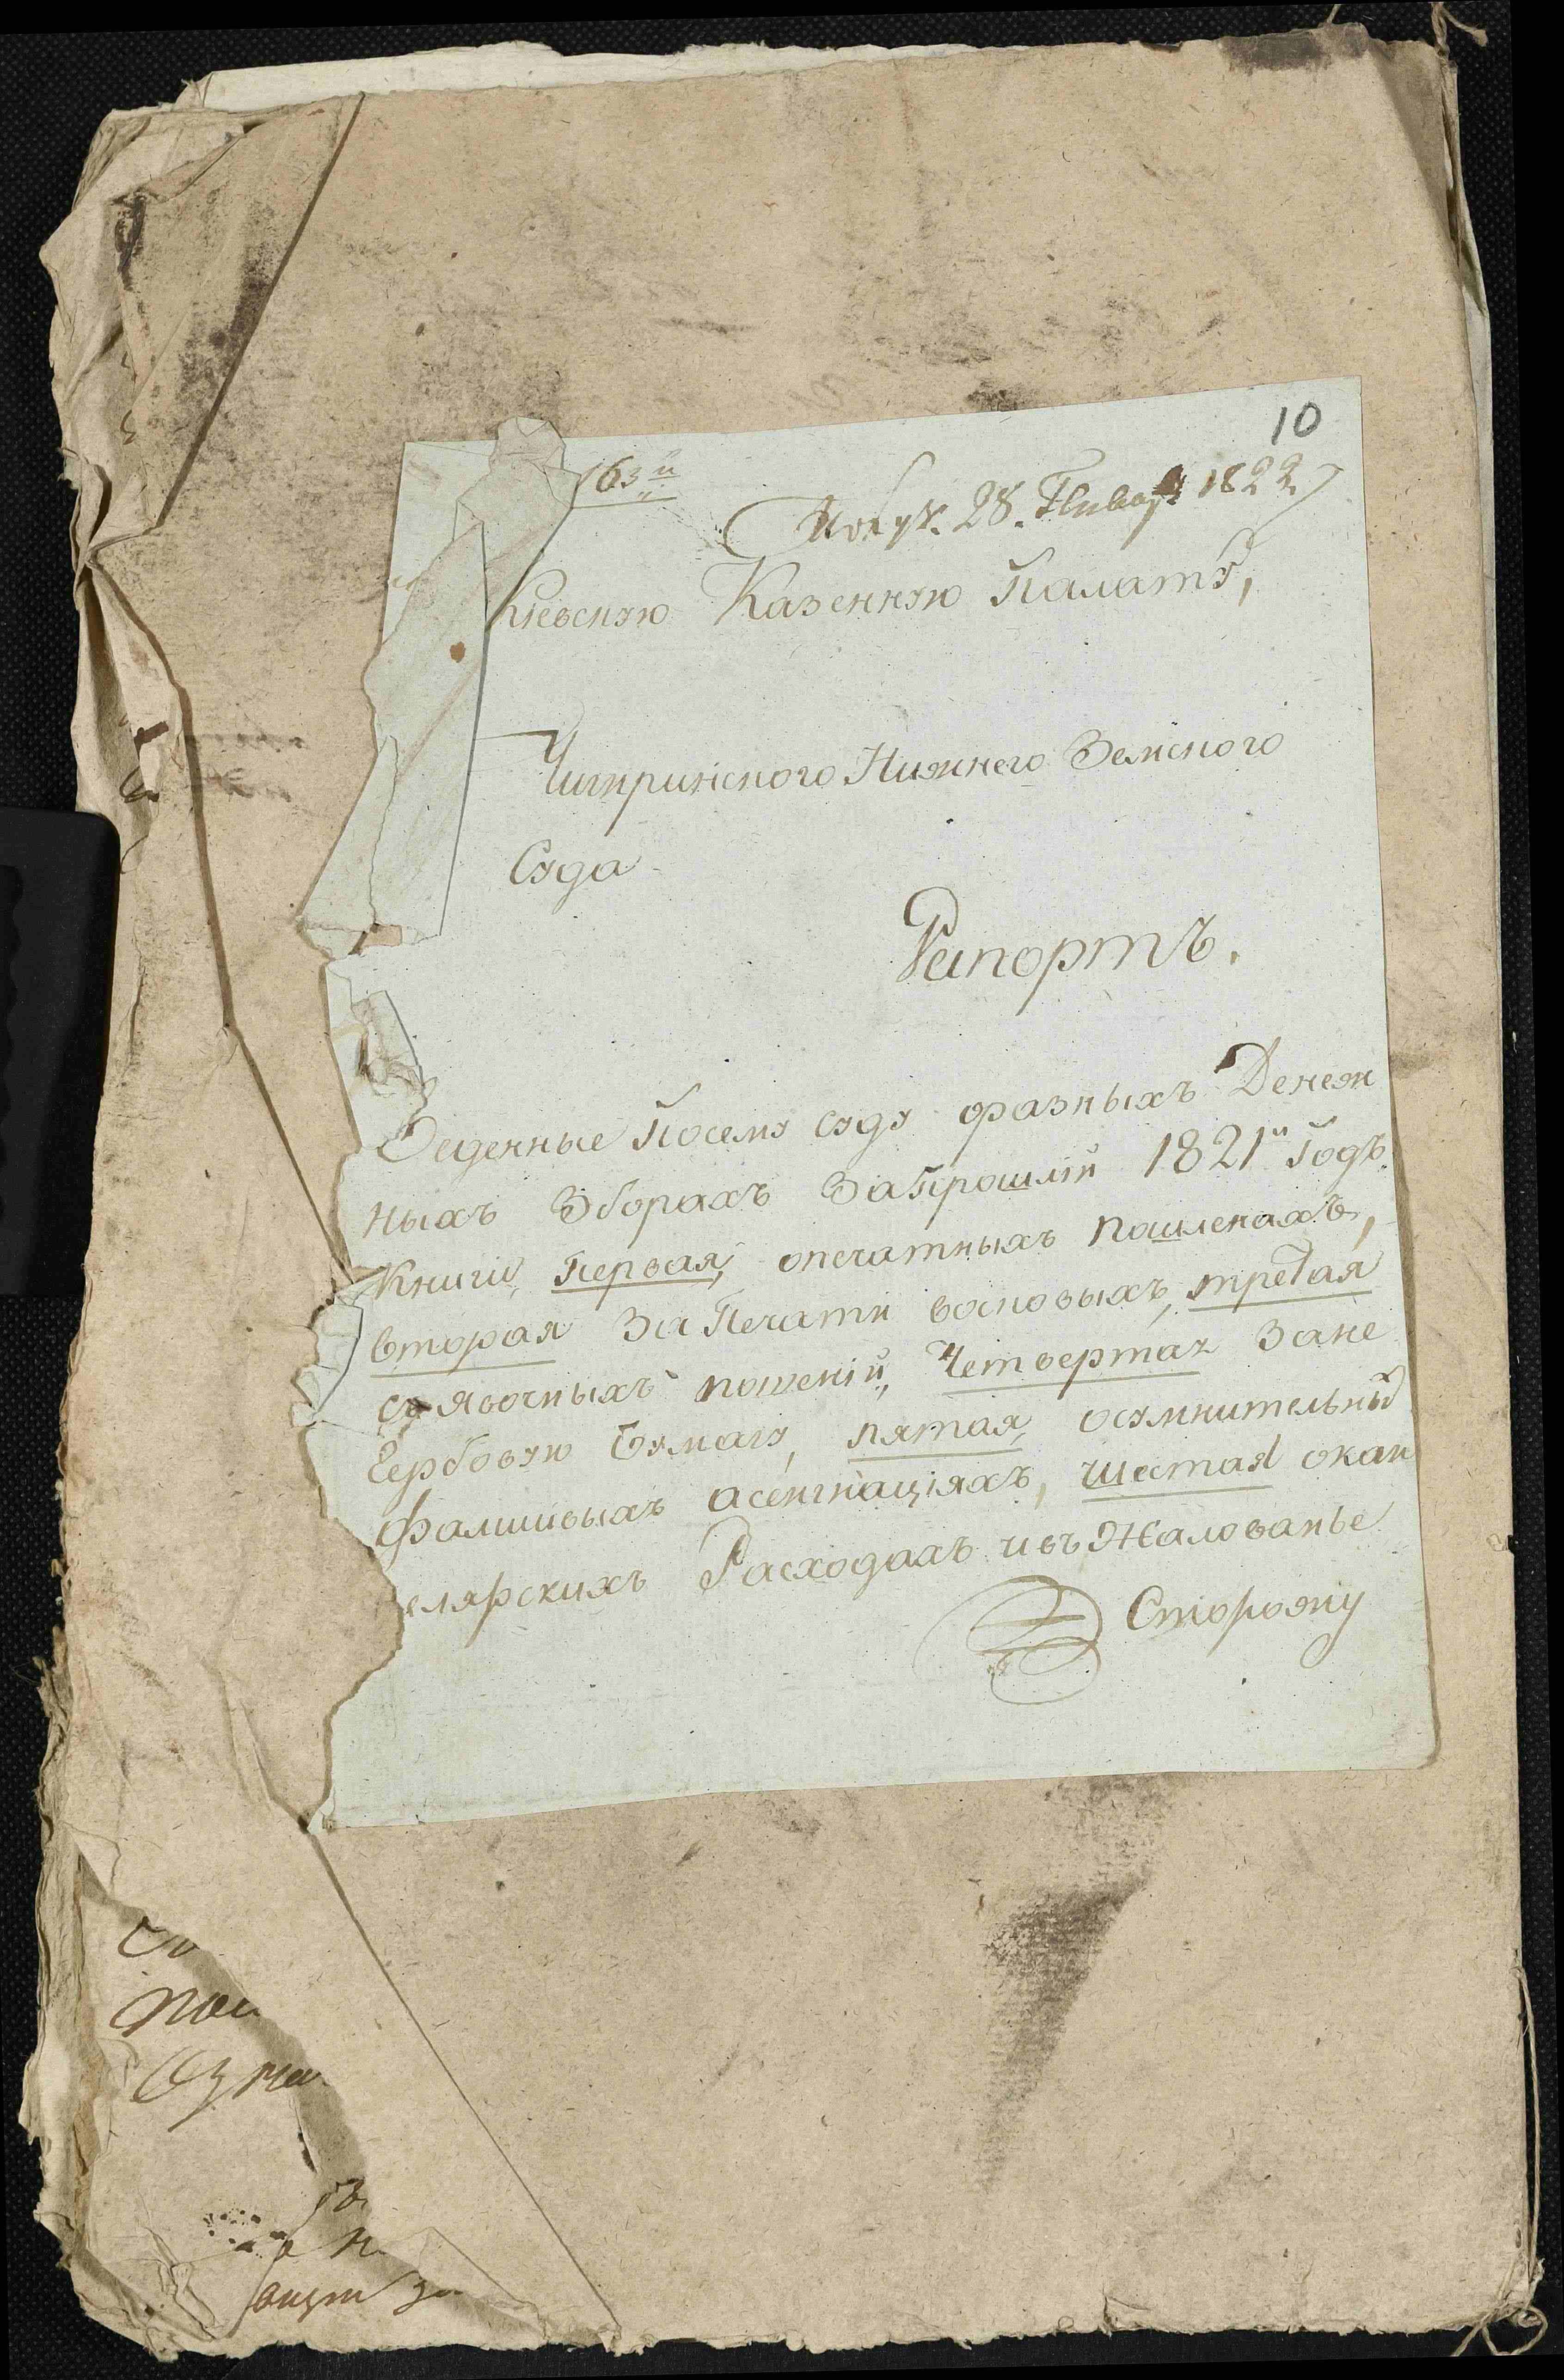 10
163й
Получ. 28. Генвар 1822
Кіевскую Казенную Палату,
Чигиринского Нижнего Земского
Суда
Рапортъ.
Веденные Посему суду оразныхъ Денеж
ныхъ Зборахъ ЗаПрошлій 1821й Годъ
Книги, Первая, опечатныхъ пошленахъ,
вторая ЗаПечати восковыхъ, третая
съ явочныхъ пошеній, Четвертая Зане
Гербовую Бумагу, пятая, осумнительный
фалшивыхъ асеигнаціяхъ, шестая окан
елярскихъ Расходахъ ивъ Жалованье
Сторожу